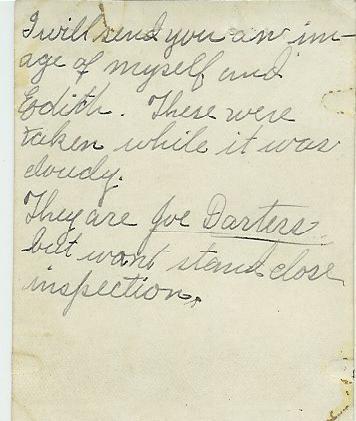 I will send you an im-
age of myself and
Eodith. These were
taken while it was
cloudy.
They are Joe Darters
but wont stand close
inspection.